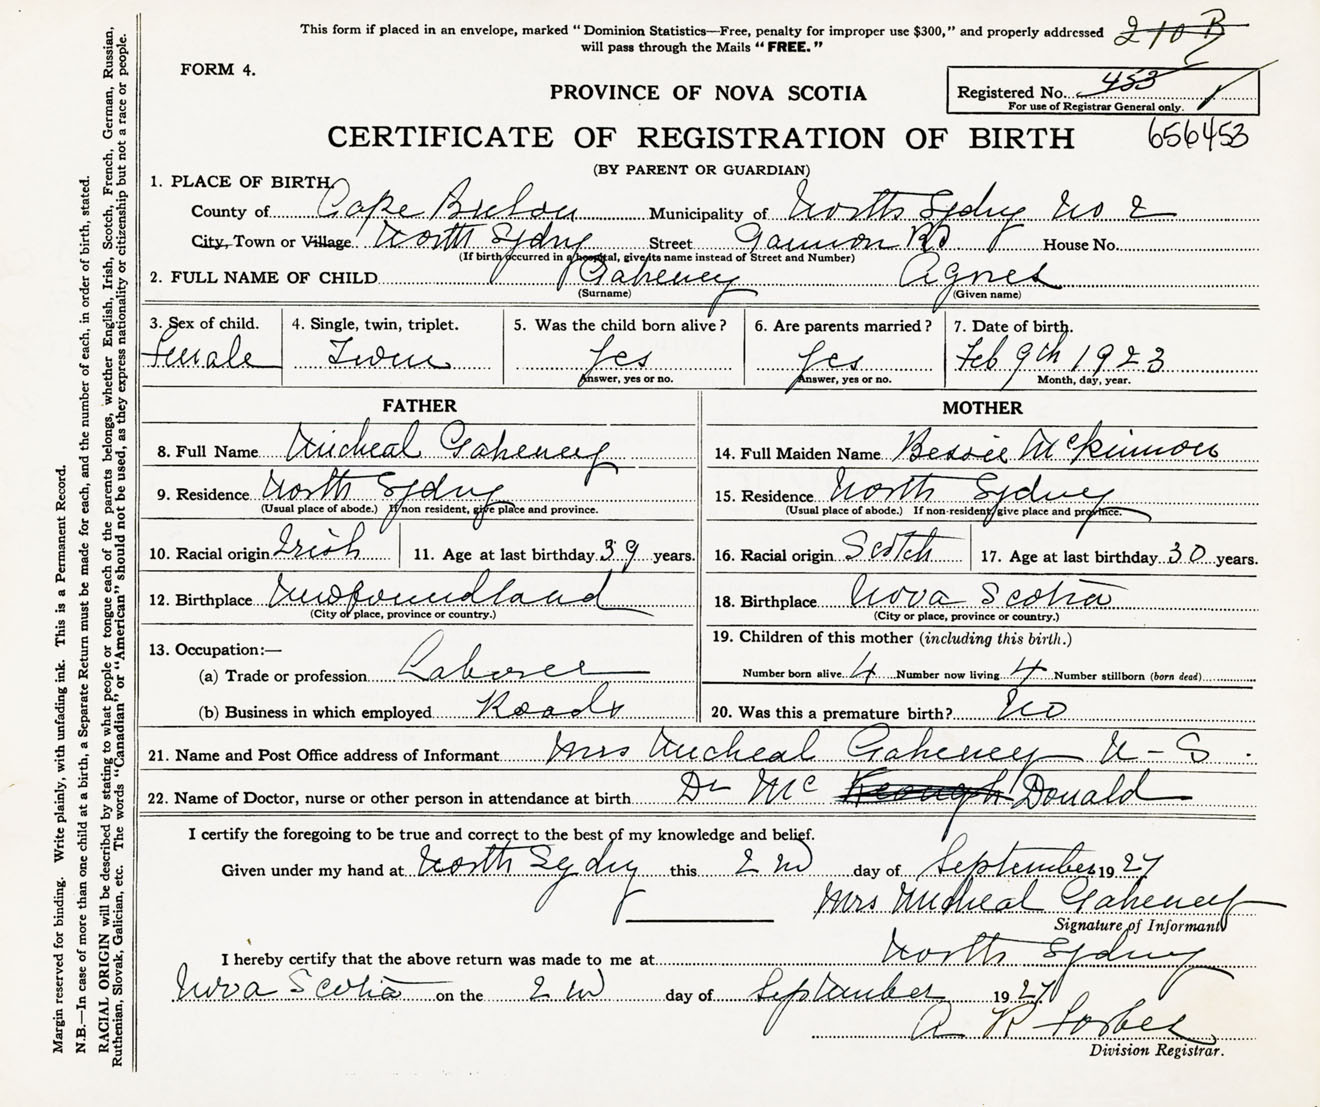 This form if placed in an envelope, marked "Dominion Statistics—Free, penalty for improper use $300," and properly addressed 210 B
will pass through the Mails "FREE."
FORM 4.
PROVINCE OF NOVA SCOTIA
Registered No. 453
For use of Registrar General only.
CERTIFICATE OF REGISTRATION OF BIRTH 656453
(BY PARENT OR GUARDIAN)
1. PLACE OF BIRTH
County of Cape Breton Municipality of North Sydney No 2
City, Town or Village North Sydny Street Gannon Rd House No.
(If birth occurred in a hospital, give its name instead of Street and Number)
2. FULL NAME OF CHILD Gaheney Agnes
(Surname) (Given name)
3. Sex of child. 4. Single, twin, triplet. 5. Was the child born alive? 6. Are parents married? 7. Date of birth.
Female Twin Yes Yes Feb 9th 1923
Answer, yes or no. Answer, yes or no. Month, day, year.
FATHER MOTHER
8. Full Name Micheal Gaheney 14. Full Maiden Name Bessie McKinnon
9. Residence North Sydny 15. Residence North Sydney
(Usual place of abode.) If non resident, give place and province. (Usual place of abode.) If non-resident, give place and province.
10. Racial origin Irish 11. Age at last birthday 39 years. 16. Racial origin Scotch 17. Age at last birthday 30 years.
12. Birthplace Newfoundland 18. Birthplace Nova Scotia
(City or place, province or country.) (City or place, province or country.)
13. Occupation:— 19. Children of this mother (including this birth.)
(a) Trade or profession Laborer Number born alive 4 Number now living 4 Number stillborn (born dead)
(b) Business in which employed Roads 20. Was this a premature birth? No
21. Name and Post Office address of Informant Mrs Micheal Gaheney N-S.
22. Name of Doctor, nurse or other person in attendance at birth Dr Mc Keough Donald
I certify the foregoing to be true and correct to the best of my knowledge and belief.
Given under my hand at North Sydny this 2nd day of September 1927
Mrs Micheal Gaheney
Signature of Informant
I hereby certify that the above return was made to me at North Sydney
Nova Scotia on the 2nd day of September 1927
A R Forbes
Division Registrar.
Margin reserved for binding. Write plainly, with unfading ink. This is a Permanent Record.
N.B.—In case of more than one child at a birth, a Separate Return must be made for each, and the number of each, in order of birth, stated.
RACIAL ORIGIN will be described by stating to what people or tongue each of the parents belongs, whether English, Irish, Scotch, French, German, Russian,
Ruthenian, Slovak, Galician, etc. The words "Canadian" or "American" should not be used, as they express nationality or citizenship but not a race or people.